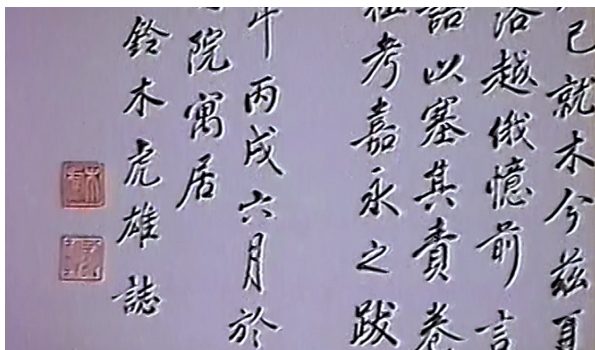 已就木今茲
越俄憶前言
語以塞其責卷
考嘉永之跋
年丙戌六月於
院寓居
鈴木虎雄誌